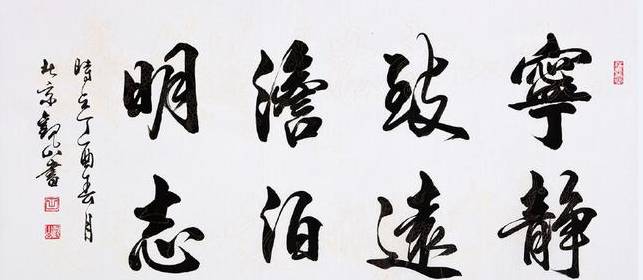 寧静
致遠
澹泊
明志
時在丁酉春月
北京觀山書